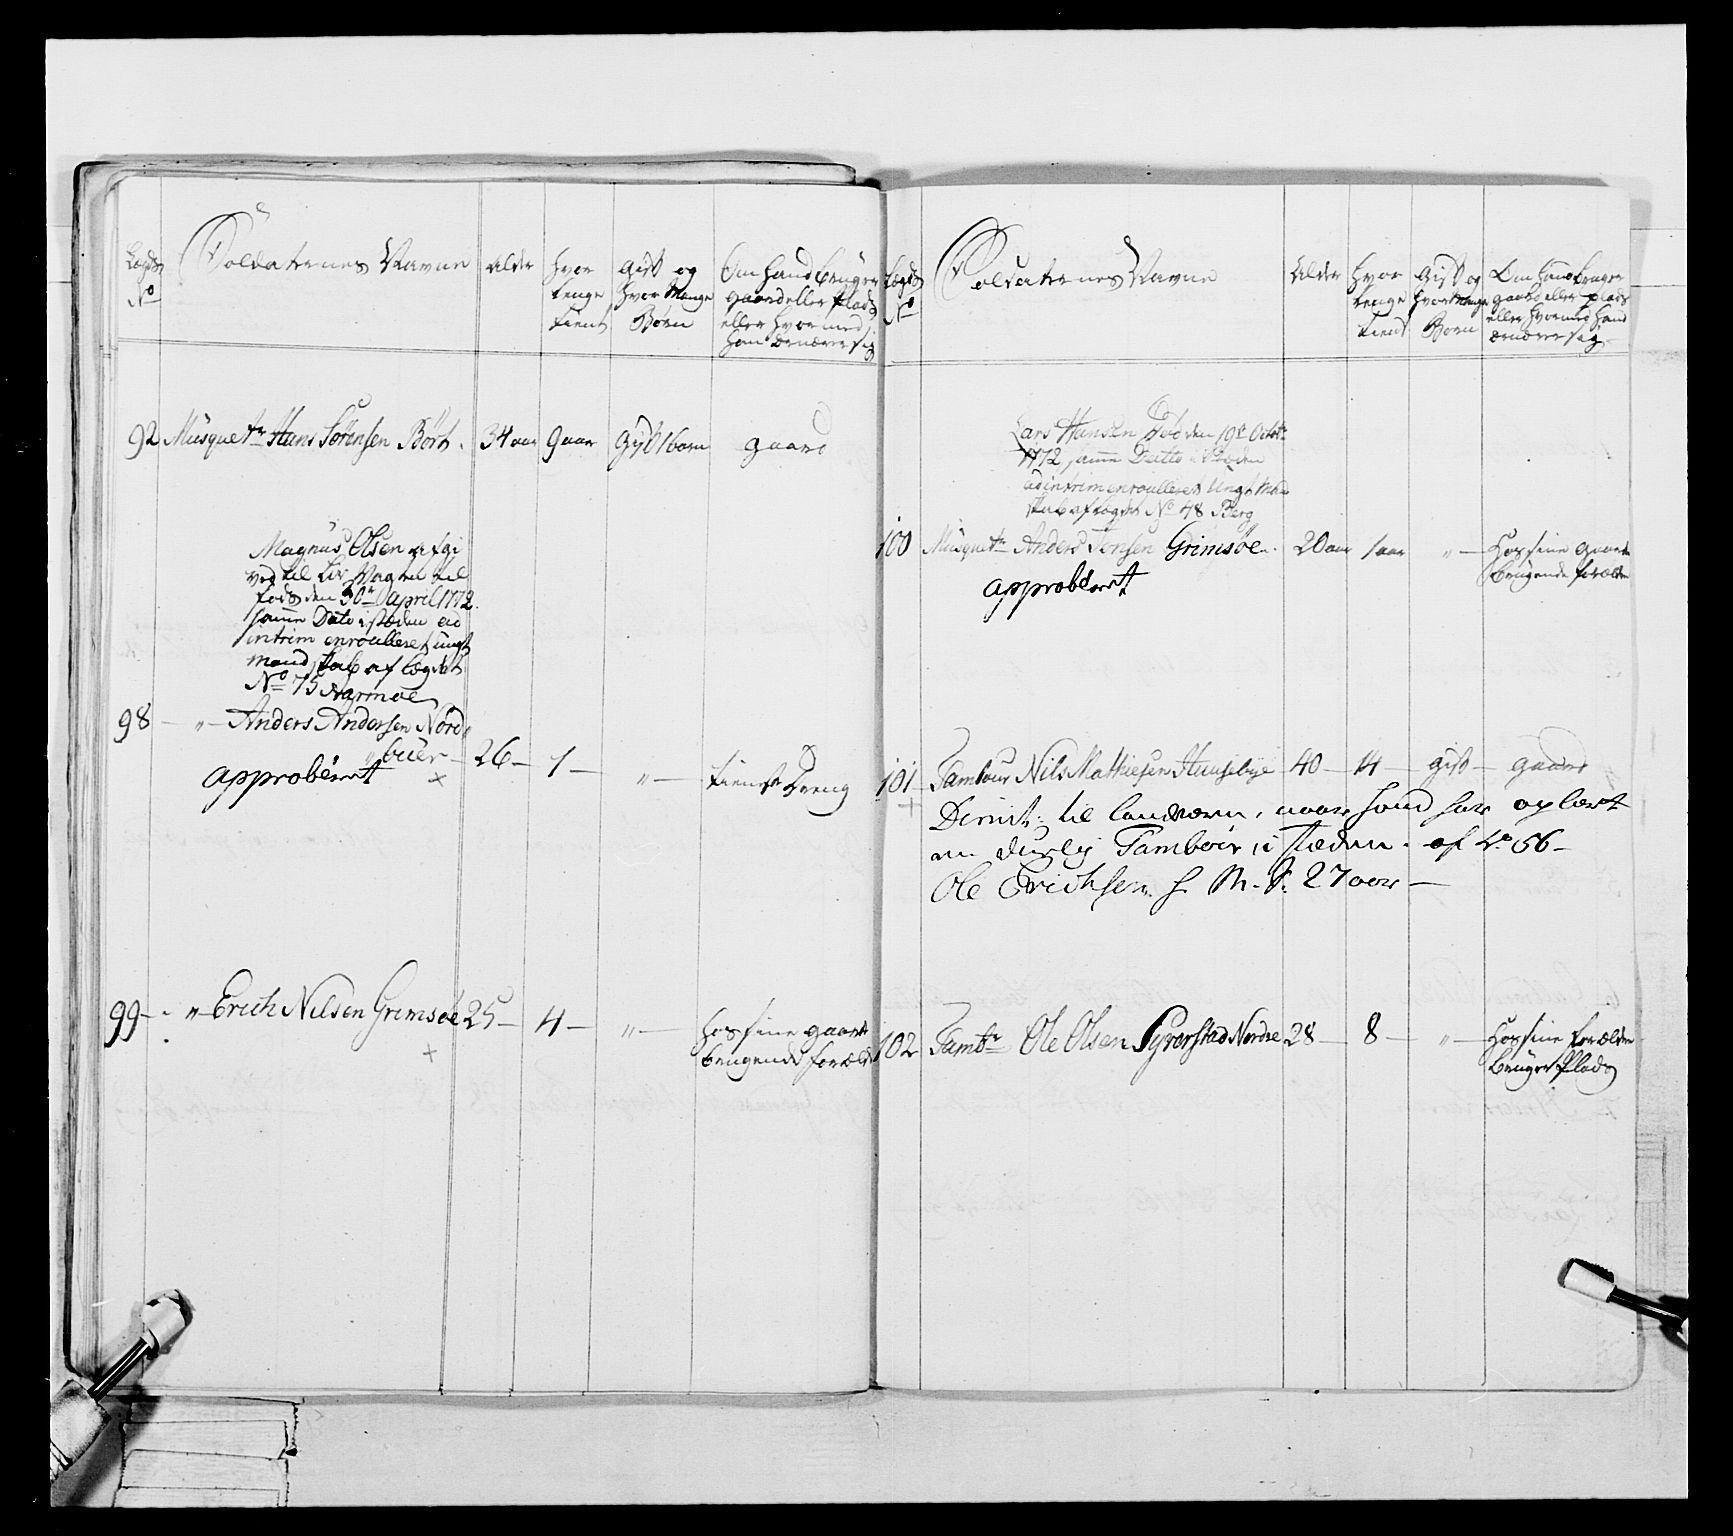 Lægds
No
Soldaternes Navne
alder
hvor
lenge
tient
gift og
hvor Mange
Børn
Om hand bruger
gaard eller plads
eller hvormed
han ernærer sig
92 Musquetr Hans Sörensen Börte 34 aar 9 aar gyft 1 barn gaard
Magnus Olsen afgi
ved til Liv Vagten til
fods den 30te April 1772.
samme Dato i stæden ad
intrim enroulleret ungt
mandskab af Lægdet
No 75
98 — " — Anders Andersen Nord
buer — 26 — 1 — " — tieneste Dreng
approberet
99 — " — Erich Nilsen Grimsøe 25 — 4 — " — hos sine gaard
brugende forældre
Lægds
No
Soldaternes Navne
alder
hvor
lenge
tient
gift og
hvor Mange
Børn
Om hand bruger
gaard eller plads
eller hvormed hand
ernærer sig
Lars Hansen Død den 19de Octobr
1772 samme Datto i stæden
ad intrim enroulleret Ungt Mand
skab af Lægdet No 48 Berg
100 Musquetr Anders Jonsen Grimsøe. 20 aar 1 aar " — Hos sine gaard
brugende forældre
approberet
101 Tambour Nils Mathiesen Huusebye 40 — 14 — gift — gaard
Dimit: til landværn, naar hand har oplært
en dyglig Tambour, i stæden. af Lo 56 —
Ole Erichsen 27 aar —
102 Tambr Ole Olsen Syverstad Nordre 28 — 8 — " — Hos sine forældre
bruger Plads